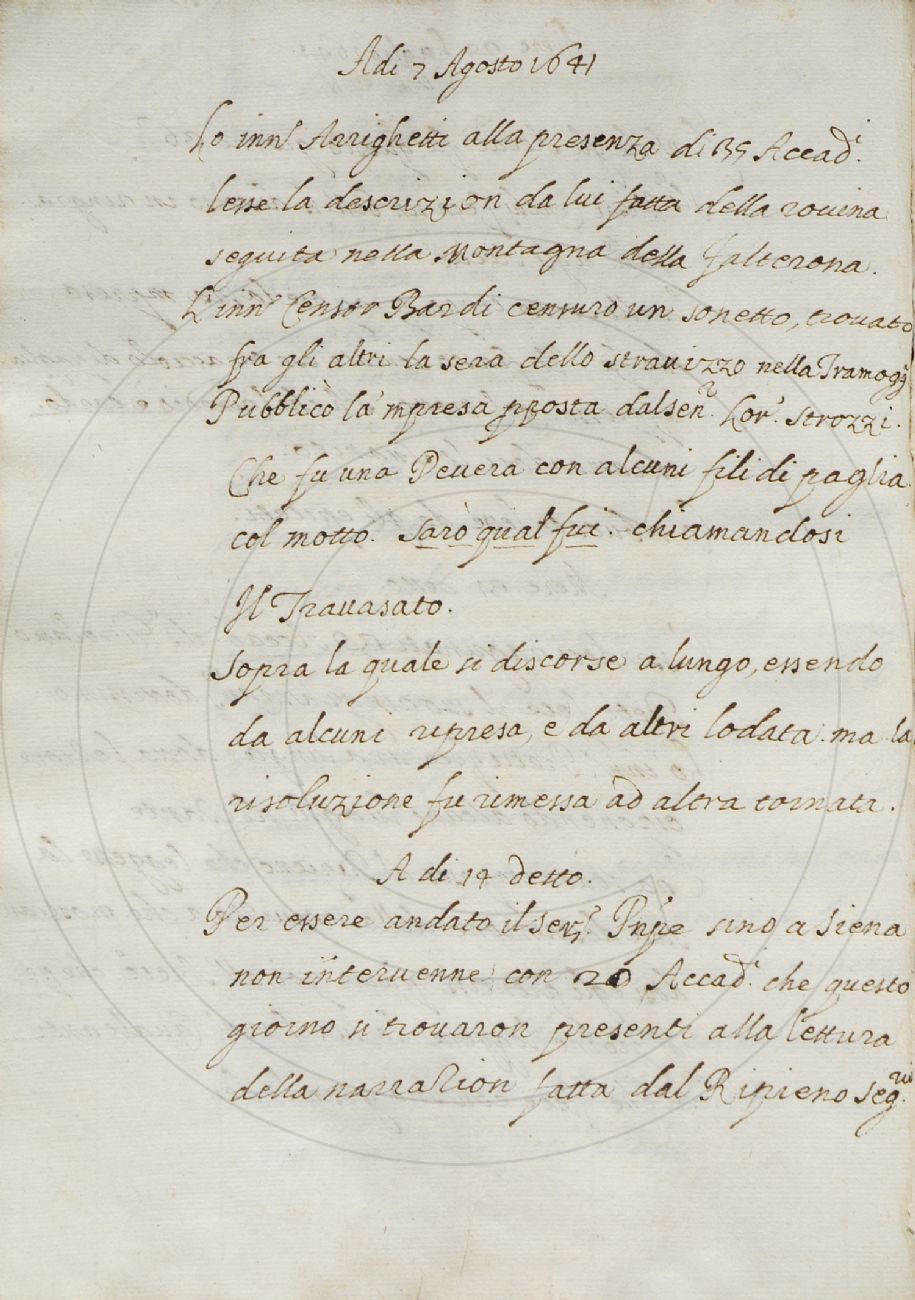 Adi 7 Agosto 1641
Lo inn.º Arrighetti alla presenza di 35 Accad.i
lesse la descrizion da lui fatta della rouina
seguita nella Montagna della Falterona.
L'inn.º Censor Bardi censurò un sonetto, trouato
fra gli altri la sera dello strauizzo nella Tramogg.ª
Pubblicò la 'mpresa pposta dal Sen.r Lor.º Strozzi.
Che fu una Peuera con alcuni fili di paglia
col motto. Sarò qual fui. chiamandosi
Il Trauasato.
Sopra la quale si discorse a lungo, essendo
da alcuni ripresa, e da altri lodata. ma la
risoluzione fu rimessa ad altra tornata.
A di 14 detto.
Per essere andato il Ser.mo Pnpe sino a Siena
non interuenne con 20 Accad.i che questo
giorno si trouaron presenti alla lettura
della narrazion fatta dal Ripieno Seg.rio